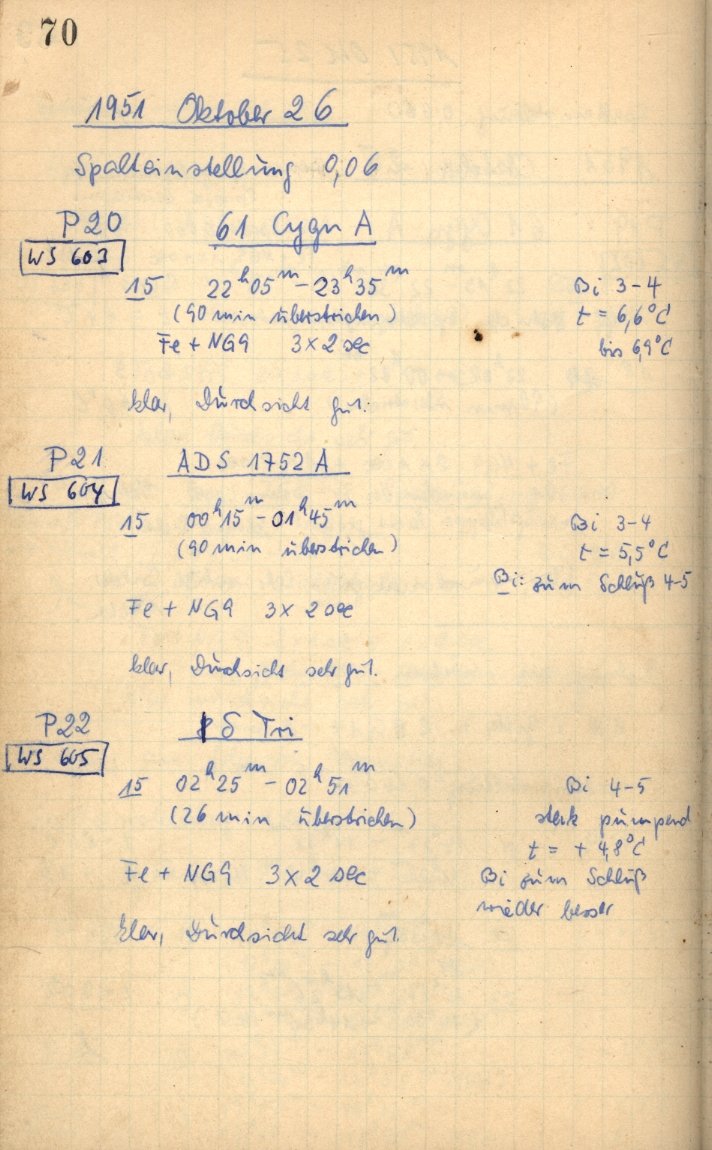 70
1951 Oktober 26
Spalteinstellung 0,06
P20 61 Cygn A
WS 603
15 22h05m - 23h35m Bi 3-4
(90 min überstrichen) t = 6,6°C
Fe + NG9 3x2 sec bis 6,9°C
klar, Durchsicht gut.
P21 ADS 1752 A
WS 604
15 00h15m - 01h45m Bi 3-4
(90 min überstrichen) t = 5,5°C
Bi: zum Schluß 4-5
Fe + NG9 3x2 sec
klar, Durchsicht sehr gut.
P22 δ Tri
WS 605
15 02h25m - 02h51m Bi 4-5
(26 min überstrichen) stark pumpend
t = + 4,8°C
Fe + NG9 3x2 sec Bi zum Schluß
wieder besser
klar, Durchsicht sehr gut.